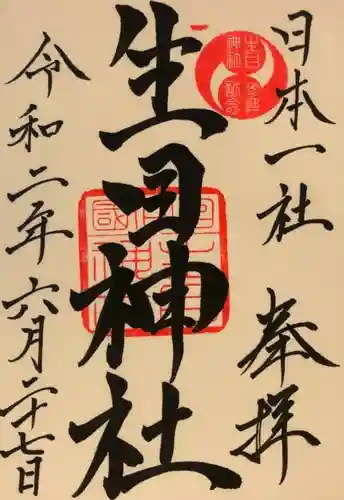 日本一社 奉拝
生目神社
令和二年六月二十七日